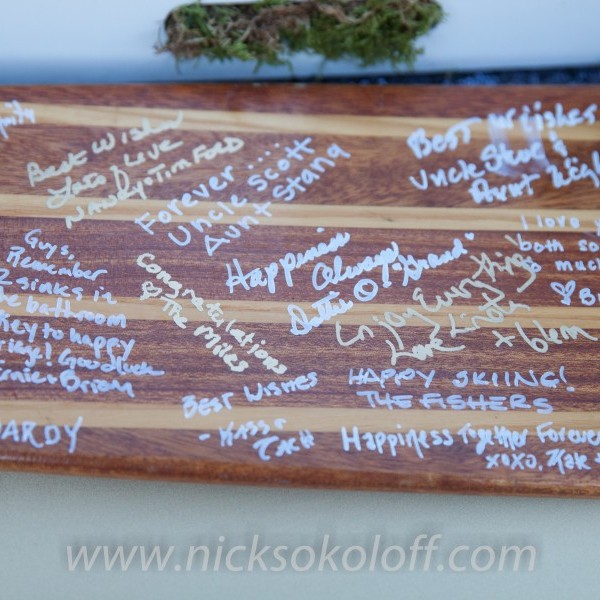 Best Wishes
Lots of Love
Nancy & Tim Ford
Forever....
Uncle Scott
Aunt Stang
Best Wishes
Uncle Steve &
Aunt
I love
both so
much
Guys,
Remember
2 sinks in
the bathroom
key to happy
Good luck
Brian
Congratulations
The Miles
Happiness
Always
"Grand"
Dottie
Enjoy Everything
Love Linda
+ Glem
Best Wishes
HAPPY SKIING!
THE FISHERS
ARDY
Happiness Together Forever
xoxo,
www.nicksokoloff.com